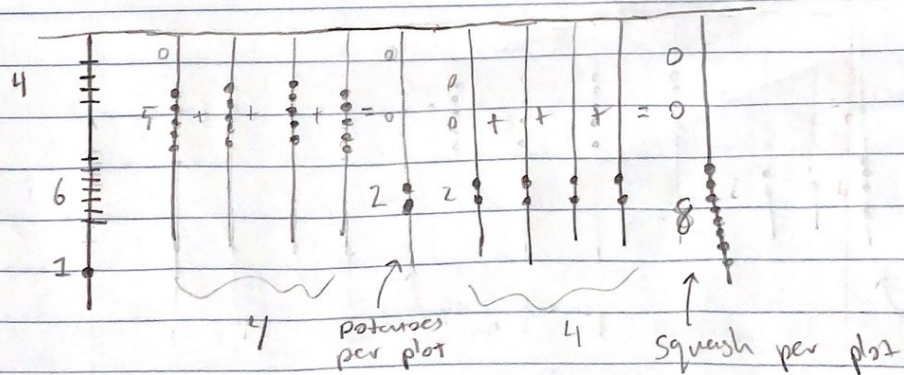 0 0 0
4
5 + + + = 0 0 + + + = 0
6 2 2 8
1
4 potatoes per plot 4 squash per plot